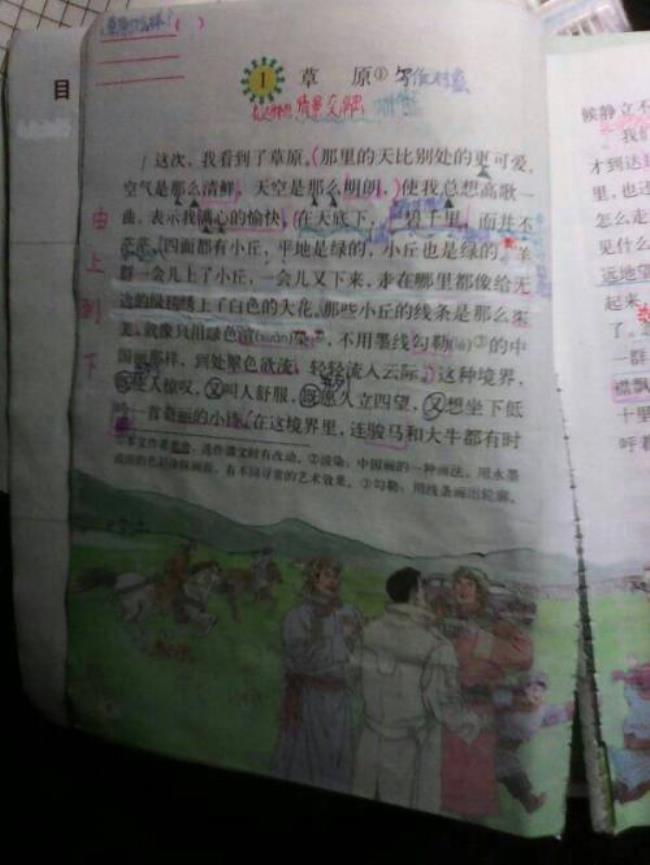 目
1 草原①
情景交融
这次，我看到了草原。那里的天比别处的更可爱，
空气是那么清鲜，天空是那么明朗，使我总想高歌一
曲，表示我满心的愉快。在天底下，一碧千里，而并不
茫茫。四面都有小丘，平地是绿的，小丘也是绿的。羊
群一会儿上了小丘，一会儿又下来，走在哪里都像给无
边的绿毯绣上了白色的大花。那些小丘的线条是那么柔
美，就像只用绿色渲(xuàn)染②，不用墨线勾勒(lè)③的中
国画那样，到处翠色欲流，轻轻流入云际。这种境界，
既使人惊叹，又叫人舒服，既愿久立四望，又想坐下低
吟一首奇丽的小诗。在这境界里，连骏马和大牛都有时
①本文作者老舍，选作课文时有改动。②渲染：中国画的一种画法，用水墨
或淡的色彩涂抹画面，有不同寻常的艺术效果。③勾勒：用线条画出轮廓。
由
上
到
下
候静立不
我们
才到达
里，也还
怎么走
见什么
远地望
起来，
了。
一群
襟飘
十里
呼着